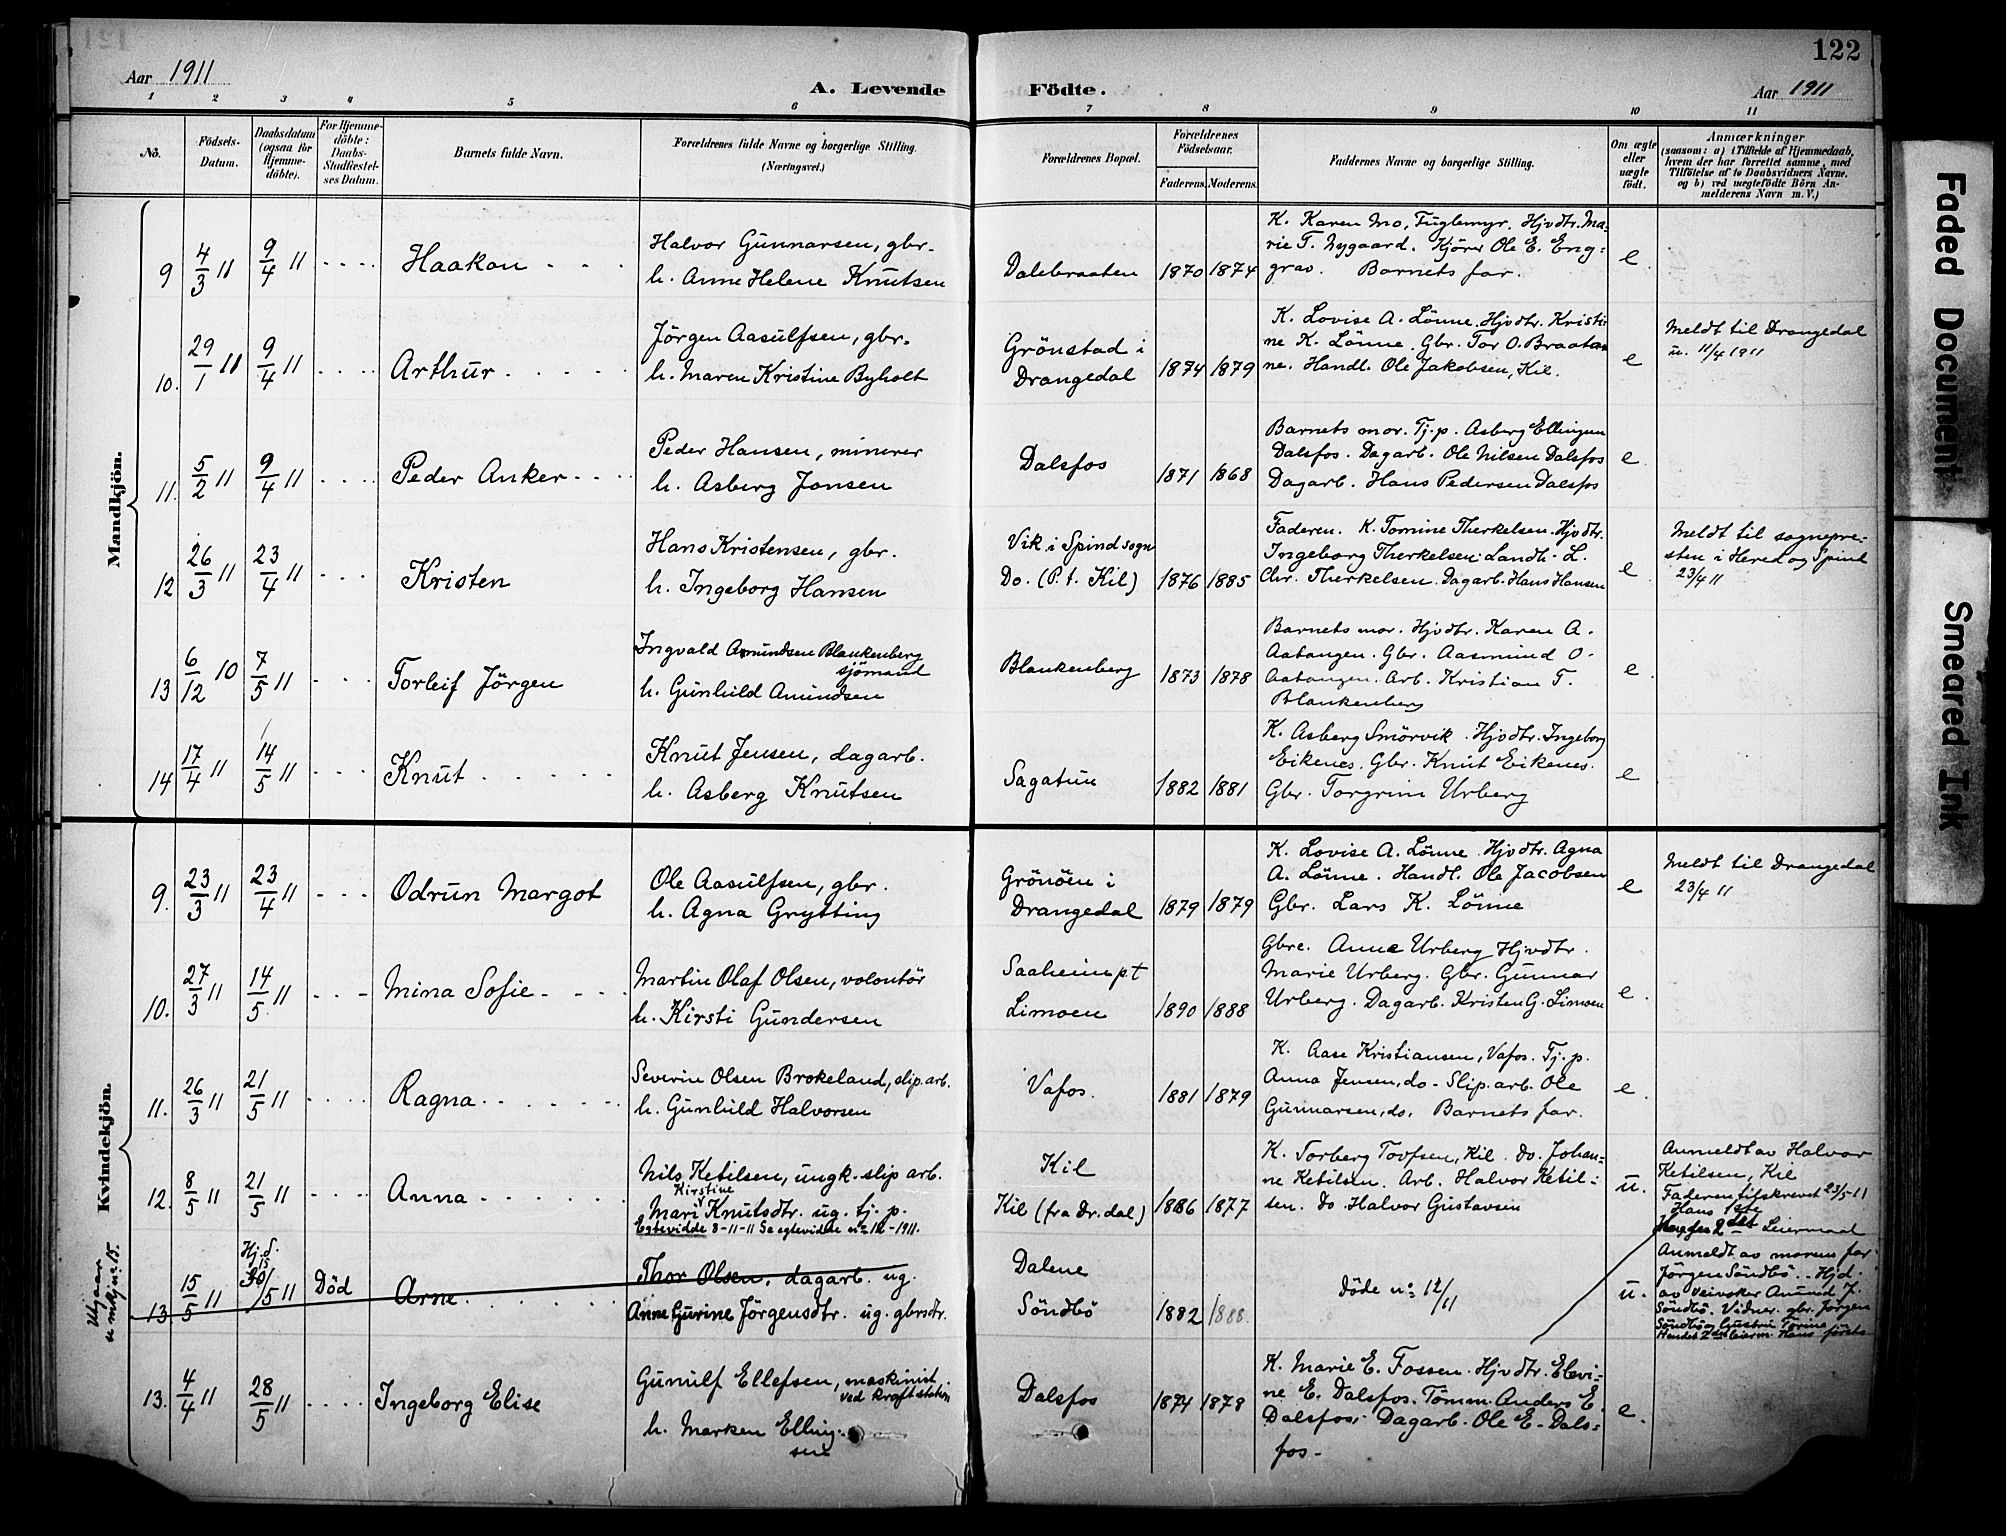 122
Aar 1911
A. Levende Födte.
Aar 1911
1 2 3 4 5 6 7 8 9 10 11
No.
Födsels-
Datum.
Daabsdatum
(ogsaa for
Hjemme-
döbte).
For Hjemme-
döbte:
Daabs-
Stadfæstel-
ses Datum.
Barnets fulde Navn.
Forældrenes fulde Navne og borgerlige Stilling.
(Næringsvei.)
Forældrenes Bopæl.
Forældrenes
Födselsaar.
Faderens. Moderens.
Faddernes Navne og borgerlige Stilling.
Om ægte
eller
uægte
födt.
Anmærkninger
(saasom: a) i Tilfælde af Hjemmedaab,
hvem der har forrettet samme, med
Tilföielse af to Daabsvidners Navne.
og b) ved uægtefödte Börn An-
melderens Navn m. V.)
Mandkjön.
9 4/3 11 9/4 11 Haakon
Halvor Gunnarsen, gbr.
h. Anne Helene Knutsen
Dalebraaten 1870 1874
K. Karen Mo, Fuglemyr. Hjvdtr. Ma-
rie T. Nygaard. Kjörer Ole E. Eng-
grav. Barnets far.
e.
10. 29/1 11 9/4 11 Arthur
Jörgen Aasulfsen, gbr.
h. Maren Kristine Byholt
Grönstad i
Drangedal 1874 1879
K. Lovise A. Lönne. Hjvdtr. Kristi-
ne K. Lönne. Gbr. Tor O. Braata-
ne. Handl. Ole Jakobsen, Kil.
e
Meldt til Drangedal
u. 11/4 1911
11. 5/2 11 9/4 11 Peder Anker
Peder Hansen, minerer
h. Asberg Jonsen
Dalsfos 1871 1868
Barnets mor. Tj.p. Asberg Ellingsen
Dalsfos. Dagarb. Ole Nilsen Dalsfos
Dagarb. Hans Pedersen Dalsfos
e
12 26/3 11 23/4 11 Kristen
Hans Kristensen, gbr.
h. Ingeborg Hansen
Vik i Spind sogn
Do. (P. t. Kil) 1876 1885
Faderen. K. Tomine Therkelsen. Hjvdtr.
Ingeborg Therkelsen. Landh. L.
Chr. Therkelsen. Dagarb. Hans Hansen
e.
Meldt til sognepre-
sten i Hered og Spind
23/4 11
13 6/12 10 7/5 11 Torleif Jörgen
Ingvald Amundsen Blankenberg
sjömand
h. Gunhild Amundsen
Blankenberg 1873 1878
Barnets mor. Hjvdtr. Karen A.
Aatangen. Gbr. Aasmund O.
Aatangen. Arb. Kristian T.
Blankenberg
e.
14 17/4 11 14/5 11 Knut
Knut Jensen, dagarb.
h. Asberg Knutsen
Sagatun 1882 1881
K. Asberg Smörvik. Hjvdtr. Ingeborg
Eikenes. Gbr. Knut Eikenes.
Gbr. Torgrim Urberg
e
Kvindekjön.
9. 23/3 11 23/4 11 Odrun Margot
Ole Aasulfsen, gbr.
h. Agna Grytting
Grönöen i
Drangedal 1879 1879
K. Lovise A. Lönne. Hjvdtr. Agna
A. Lönne. Handl. Ole Jacobsen
Gbr. Lars K. Lönne
e
Meldt til Drangedal
23/4 11
10. 27/3 11 14/5 11 Mina Sofie
Martin Olaf Olsen, volontör
h. Kirsti Gundersen
Saaheim pt
Limoen 1890 1888
Gbre. Anne Urberg Hjvdtr.
Marie Urberg. Gbr. Gunnar
Urberg. Dagarb. Kristen G. Limoen
e.
11. 26/3 11 21/5 11 Ragna
Severin Olsen Brokeland, slip.arb.
h. Gunhild Halvorsen
Vafos. 1881 1879
K. Aase Kristiansen, Vafos. Tj.p.
Anna Jensen, do. Slip.arb. Ole
Gunnarsen, do. Barnets far.
e.
12. 8/5 11 21/5 11 Anna
Nils Ketilsen, ungk. slip arb.
Kirstine
Mari Knutsdtr. ug. tj. p.
Egtevidde 3-11-11 Se egtevidde no 12-1911.
Kil
Kil (fra Dr.dal) 1886 1877
K. Torberg Tovfsen, Kil. Do. Johan-
ne Ketilsen. Arb. Halvor Ketil-
sen. Do Halvor Gustavsen
u.
Anmeldt av Halvor
Ketilsen, Kil
Faderen tilskrevet 23/5-11
Hans 1ste
2det Leiermaal
Utgaar
se mkj no 15.
13 15/5 11 Hj.d. 15/5 11 Död Arne
Thor Olsen, dagarb. ug.
Anne Gurine Jörgensdtr. ug. gbrsdtr.
Dalene
Söndbö 1882 1888.
Döde no 12/11
u.
Anmeldt av morens far
Jörgen Söndbö. Hjd.
av veivokter Amund J.
Söndbö. Vidner. gbr. Jörgen
Söndbö og hustru Torine
Hendes 2det leierm. Hans förste
13. 4/4 11 28/5 11 Ingeborg Elise
Gunulf Ellefsen, maskinist
ved kraftstation
h. Marken Elling-
sen
Dalsfos 1874 1878
K. Marie E. Fossen. Hjvdtr. Elevi-
ne E. Dalsfos. Tömm. Anders E.
Dalsfos. Dagarb. Ole E. Dals-
fos.
e.
Faded Document
Smeared Ink